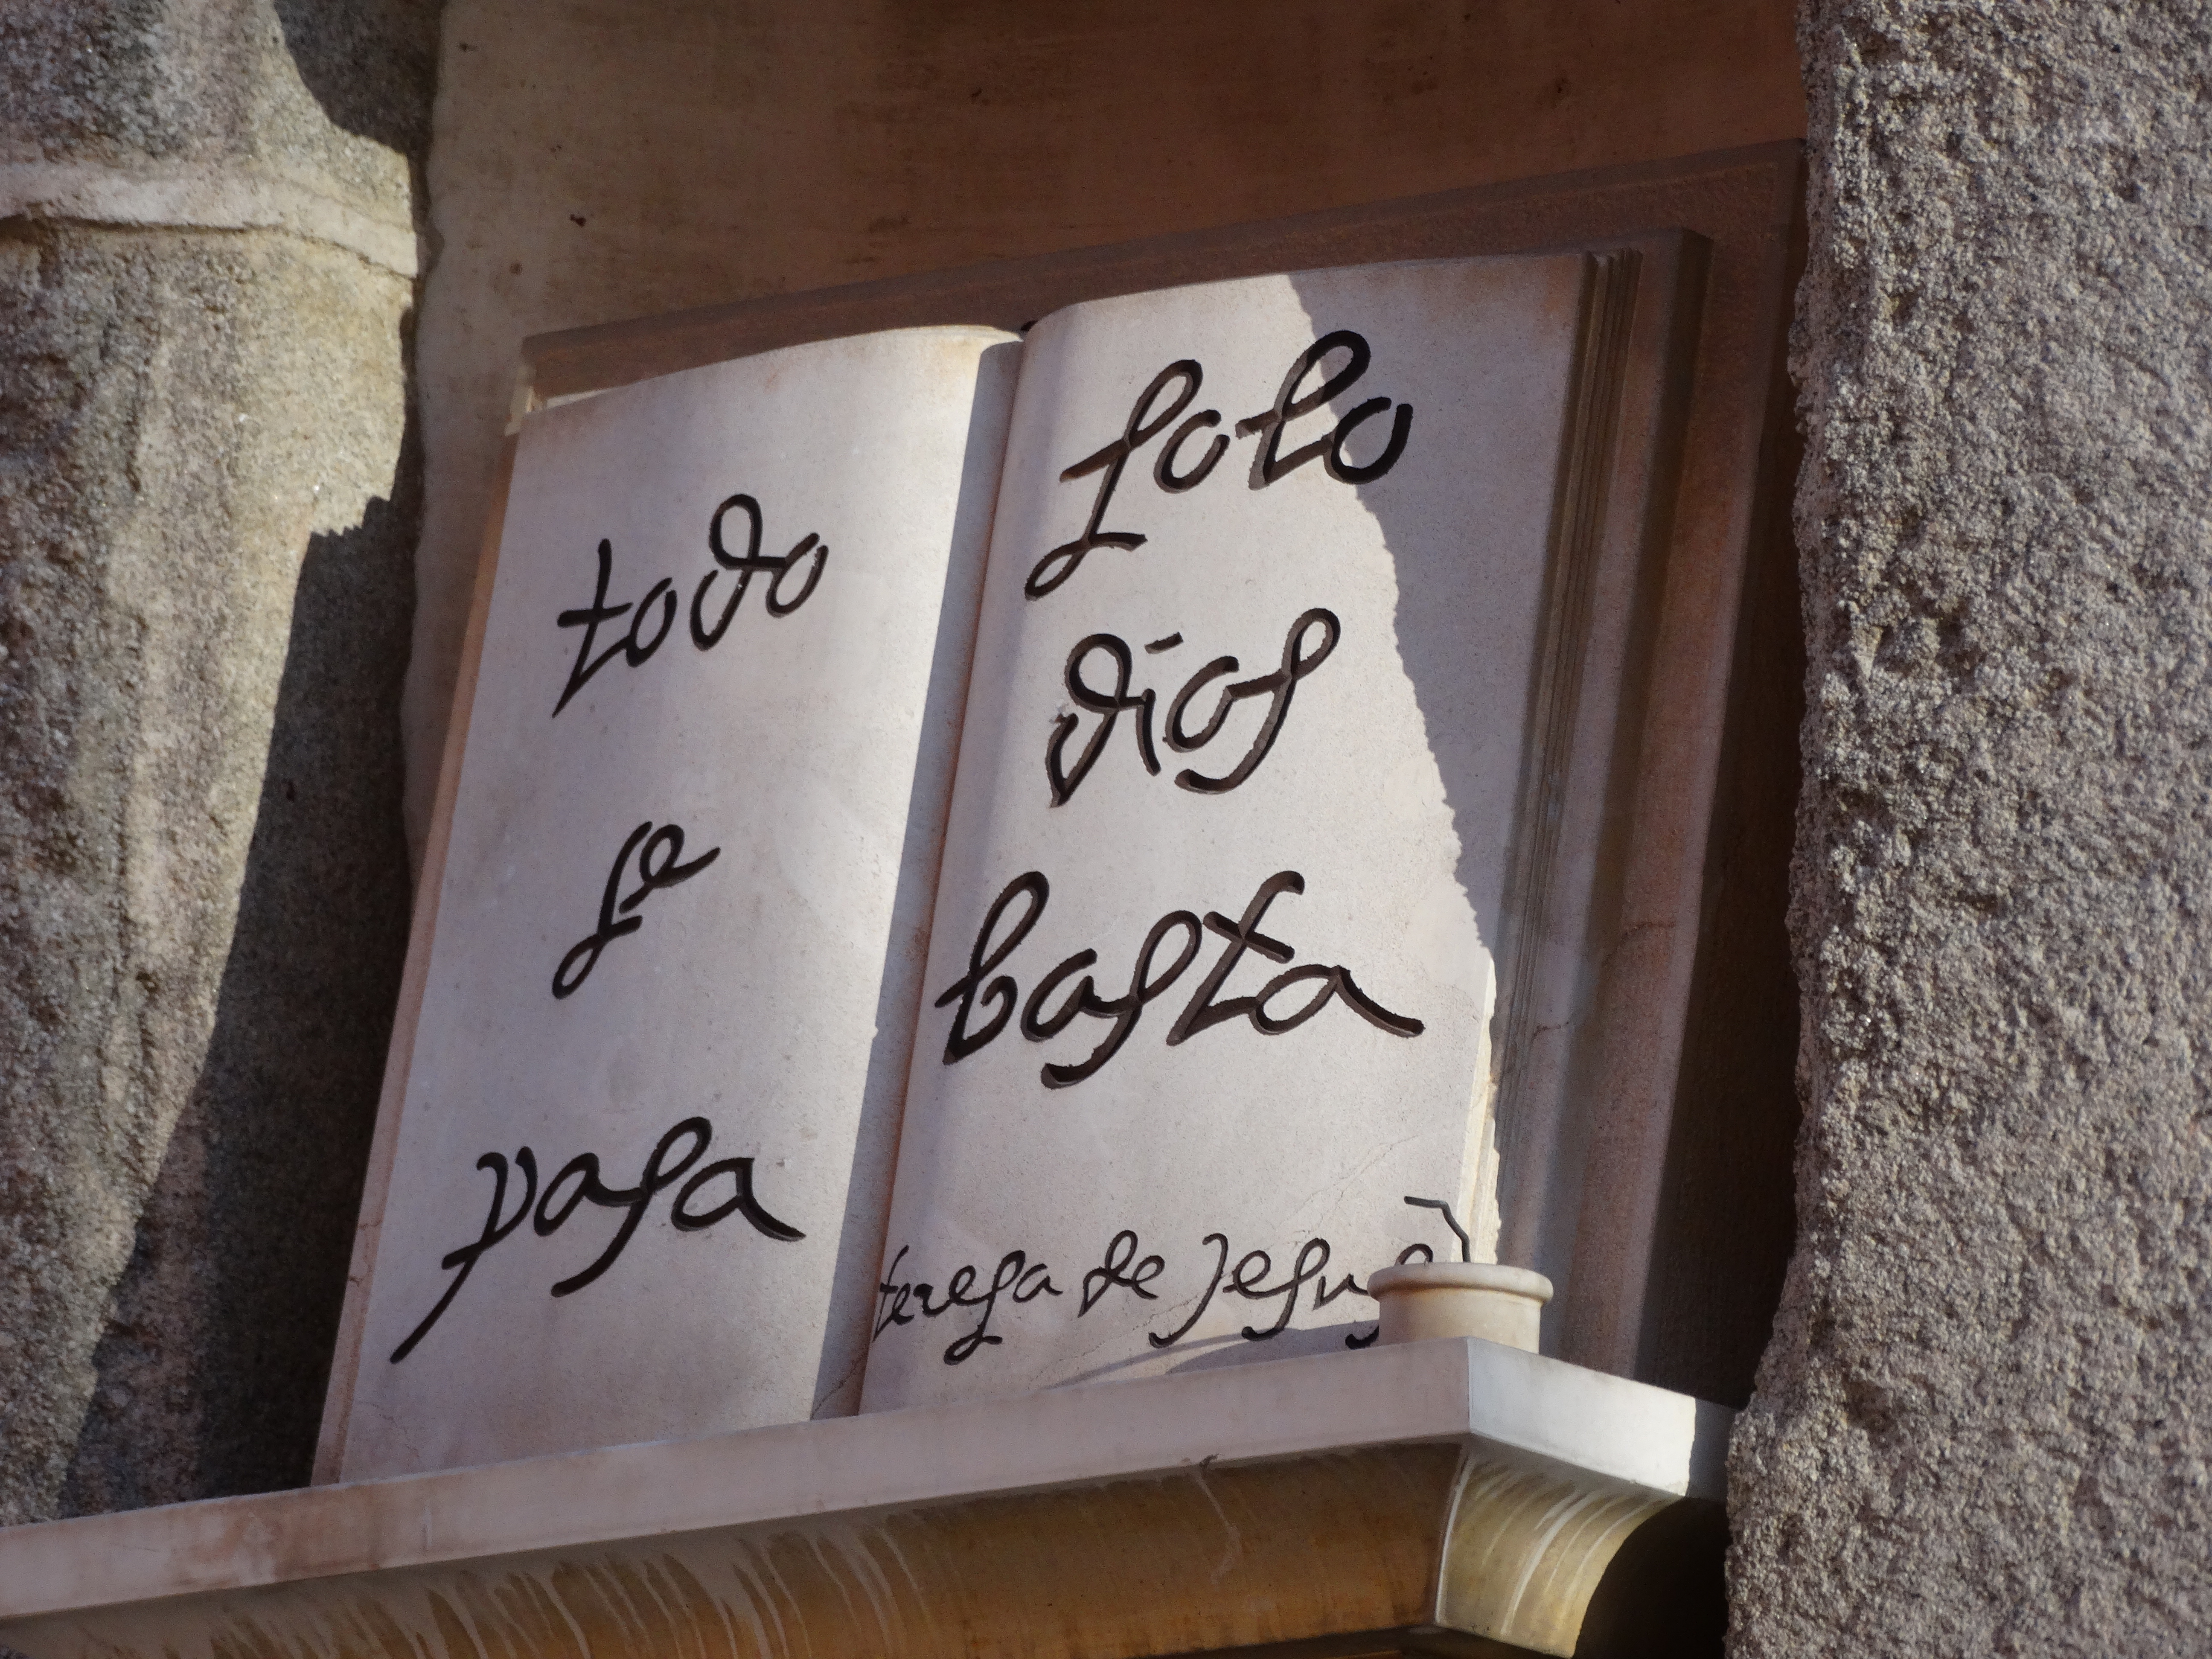 todo
se
pasa
solo
dios
basta
teresa de Jesus